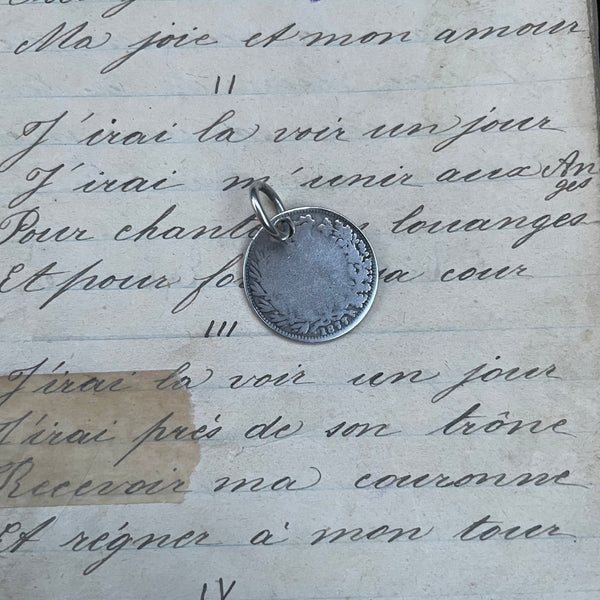 Ma joie et mon amour
II
J'irai la voir un jour
J'irai m'unir aux Anges
Pour chant louanges
Et pour fo sa cour
III
J'irai la voir un jour
J'irai prés de son trône
Recevoir ma couronne
Et régner à mon tour
IV
1877